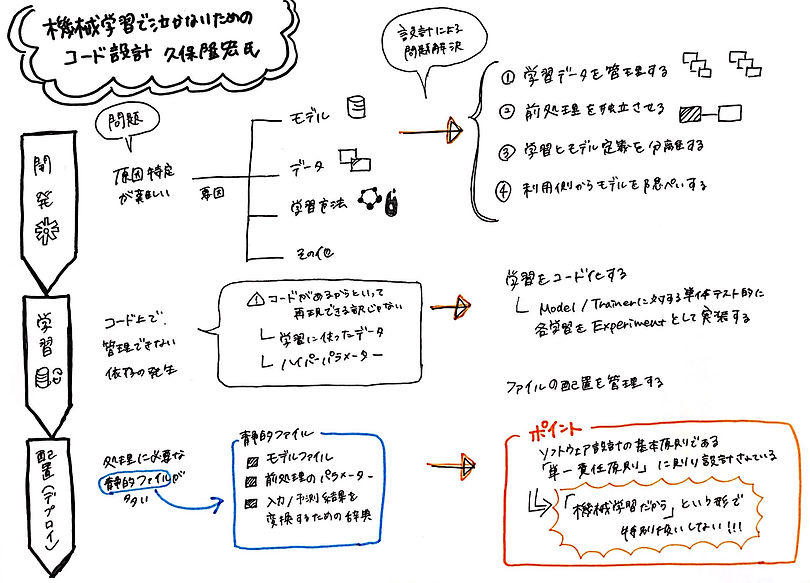 機械学習で泣かないための
コード設計 久保隆宏氏
設計による
問題解決
開発
問題
原因特定
が難しい
要因
モデル
データ
学習方法
その他
① 学習データを管理する
② 前処理を独立させる
③ 学習とモデル定義を分離する
④ 利用側からモデルを隠ぺいする
学習
コード上で、
管理できない
依存の発生
コードがあるからといって
再現できる訳じゃない
学習に使ったデータ
ハイパーパラメーター
学習をコード化する
Model / Trainerに対する単体テスト的に
各学習をExperimentとして実装する
ファイルの配置を管理する
配置(デプロイ)
処理に必要な
静的ファイルが
多い
静的ファイル
モデルファイル
前処理のパラメーター
入力/予測結果を
変換するための辞典
ポイント
ソフトウェア設計の基本原則である
「単一責任原則」に則り設計されている
「機械学習だから」という形で
特別扱いしない!!!